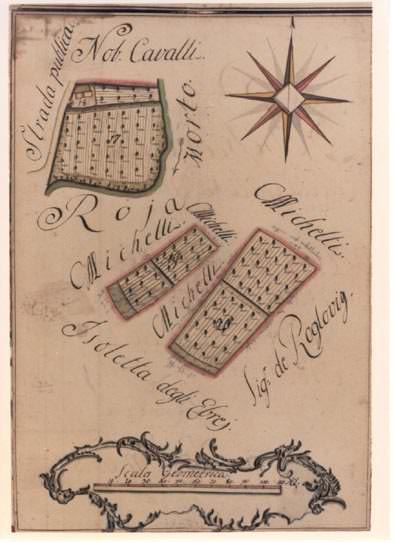 Strada publica
Nob: Cavalli.
Torto
7.
Roja
Michelli.
Michelli
Michelli
Michelli
20
Sig: de Reglovig.
Isoletta degli Ebrej.
Scala Geometrica